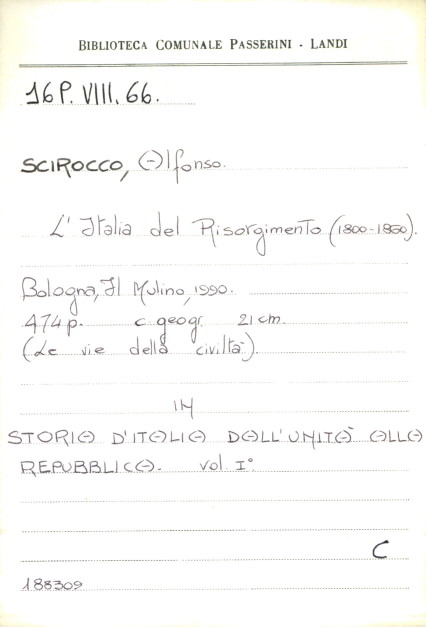 BIBLIOTECA COMUNALE PASSERINI - LANDI
16 P. VIII. 66.
SCIROCCO, Alfonso.
L' Italia del Risorgimento (1800-1860).
Bologna, Il Mulino, 1990.
474 p. c. geogr. 21 cm.
(Le vie della civiltà).
IN
STORIA D'ITALIA DALL'UNITÀ ALLA
REPUBBLICA. vol. I°
C
188309